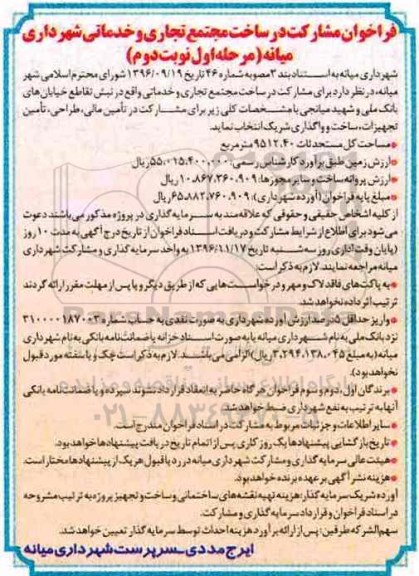 فراخوان مشارکت در ساخت مجتمع تجاری و خدماتی شهرداری
میانه (مرحله اول نوبت دوم)
شهرداری میانه به استناد بند ۳ مصوبه شماره ۴۶ تاریخ ۱۳۹۶/۰۹/۱۹ شورای محترم اسلامی شهر
میانه، در نظر دارد برای مشارکت در ساخت مجتمع تجاری و خدماتی واقع در نبش تقاطع خیابان‌های
بانک ملی و شهید میانجی با مشخصات کلی زیر برای مشارکت در تأمین مالی، طراحی، تأمین
تجهیزات، ساخت و واگذاری شریک انتخاب نماید.
* مساحت کل مستحدثات ۹۵۱۲.۴۰ مترمربع
* ارزش زمین طبق برآورد کارشناس رسمی: ۵۵،۰۱۵،۴۰۰،۰۰۰ ریال
* ارزش پروانه ساخت و سایر مجوزها: ۱۰،۸۶۷،۳۶۰،۹۰۹ ریال
* مبلغ پایه فراخوان (آورده شهرداری): ۶۵،۸۸۲،۷۶۰،۹۰۹ ریال
از کلیه اشخاص حقیقی و حقوقی که علاقه‌مند به سرمایه گذاری در پروژه مذکور می‌باشند دعوت
می‌شود برای اطلاع از شرایط مشارکت و دریافت اسناد فراخوان از تاریخ درج آگهی به مدت ۱۰ روز
(پایان وقت اداری روز سه شنبه تاریخ ۱۳۹۶/۱۱/۱۷) به واحد سرمایه گذاری و مشارکت شهرداری
میانه مراجعه نمایند. لازم به ذکر است:
* به پاکت‌های فاقد لاک و مهر و درخواست‌هایی که از طریق دیگر و یا پس از مهلت مقرر ارائه گردند
ترتیب اثر داده نخواهد شد.
* واریز حداقل ۵ درصد ارزش آورده شهرداری به صورت نقدی به حساب شماره ۳۱۰۰۰۰۱۸۷۰۰۳
نزد بانک ملی به نام شهرداری میانه یا به صورت اسناد خزانه یا ضمانتنامه بانکی به نام شهرداری
میانه (به مبلغ ۳،۲۹۴،۱۳۸،۰۴۵ ریال) الزامی می‌باشد. لازم به ذکر است چک و یا سفته مورد قبول
نخواهد بود).
* برندگان اول، دوم و سوم فراخوان هرگاه حاضر به انعقاد قرارداد نشوند سپرده و یا ضمانت‌نامه بانکی
آنها به ترتیب به نفع شهرداری ضبط خواهد شد.
* سایر اطلاعات و جزئیات مربوط به مشارکت در اسناد فراخوان مندرج است.
* تاریخ بازگشایی پیشنهادها یک روز کاری پس از اتمام تاریخ دریافت پیشنهادها خواهد بود.
* هیئت عالی سرمایه گذاری و مشارکت شهرداری میانه در رد یا قبول هر یک از پیشنهادها مختار است.
* هزینه نشر آگهی بر عهده برنده خواهد بود.
آورده شریک سرمایه گذار: هزینه تهیه نقشه‌های ساختمانی و ساخت و تجهیز پروژه به ترتیب مشروحه
در اسناد فراخوان و قرارداد سرمایه گذاری و مشارکت.
سهم الشرکه طرفین: پس از ارائه برآورد هزینه احداث توسط سرمایه گذار تعیین خواهد شد.
ایرج مددی_سرپرست شهرداری میانه